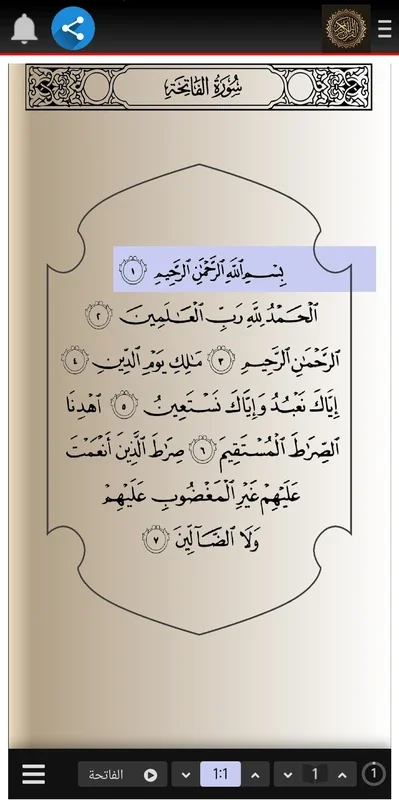 سُورَةُ الفَاتِحَةِ
بِسْمِ اللَّهِ الرَّحْمَٰنِ الرَّحِيمِ ١
الْحَمْدُ لِلَّهِ رَبِّ الْعَالَمِينَ ٢
الرَّحْمَٰنِ الرَّحِيمِ ٣ مَالِكِ يَوْمِ الدِّينِ ٤
إِيَّاكَ نَعْبُدُ وَإِيَّاكَ نَسْتَعِينُ ٥ اهْدِنَا
الصِّرَاطَ الْمُسْتَقِيمَ ٦ صِرَاطَ الَّذِينَ أَنْعَمْتَ
عَلَيْهِمْ غَيْرِ الْمَغْضُوبِ عَلَيْهِمْ
وَلَا الضَّآلِّينَ ٧
الفاتحة 1:1 1 1